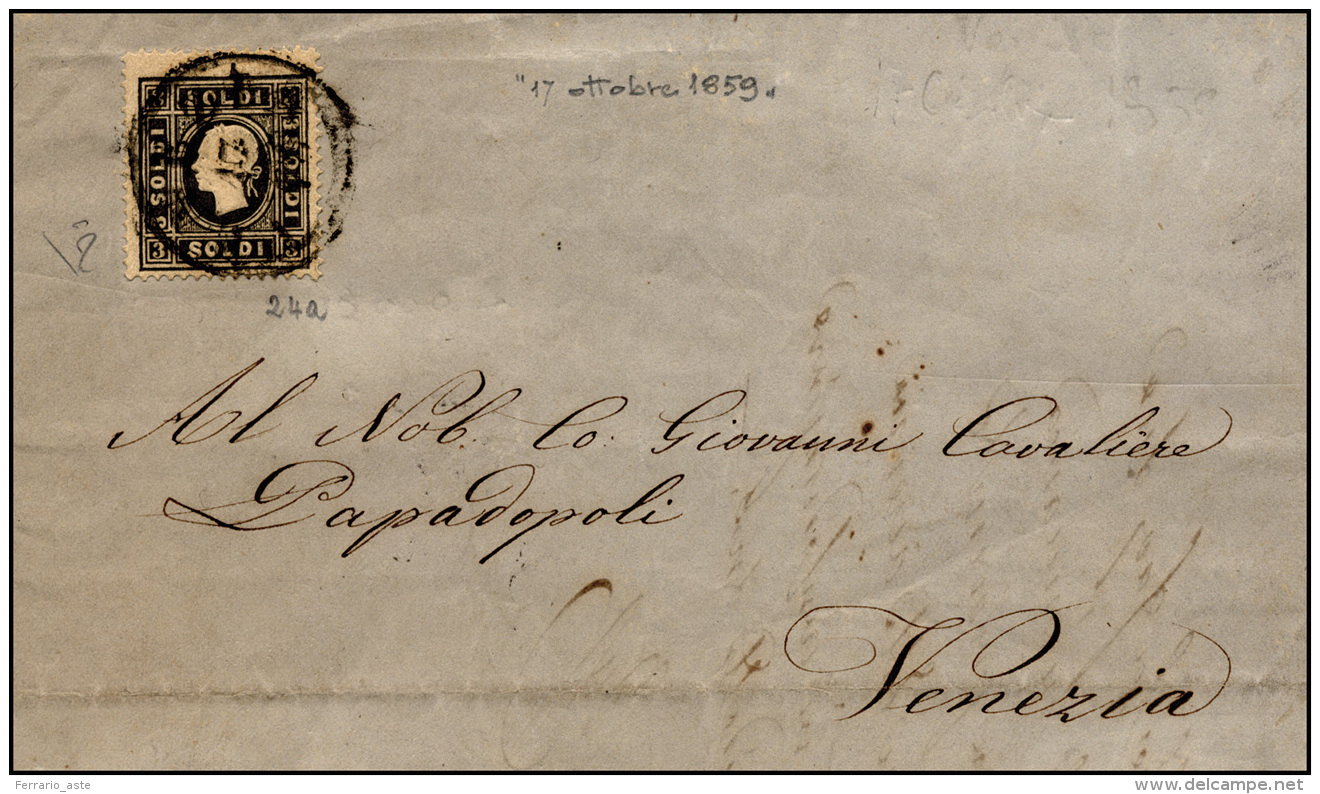 "17 ottobre 1859"
3 SOLDI 3
3 SOLDI
3 SOLDI
3 SOLDI 3
24a
Al Nob. Co: Giovanni Cavaliere
Papadopoli
Venezia
Ferrario_aste
www.delcampe.net